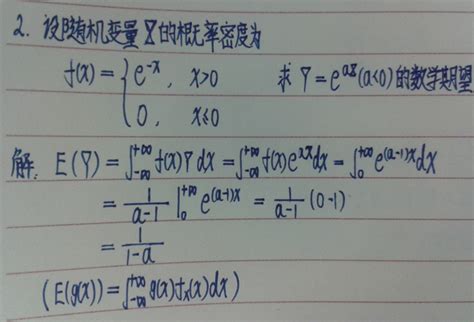 2. 设随机变量X的概率密度为
f(x) = { e^{-x}, x>0 求 Y = e^{aX} (a<0) 的数学期望
0, x≤0
解: E(Y) = ∫_{-∞}^{+∞} f(x) Y dx = ∫_{-∞}^{+∞} f(x) e^{ax} dx = ∫_0^{+∞} e^{(a-1)x} dx
= \frac{1}{a-1} |_0^{+∞} e^{(a-1)x} = \frac{1}{a-1} (0-1)
= \frac{1}{1-a}
(E(g(x)) = ∫_{-∞}^{+∞} g(x) f_x(x) dx)